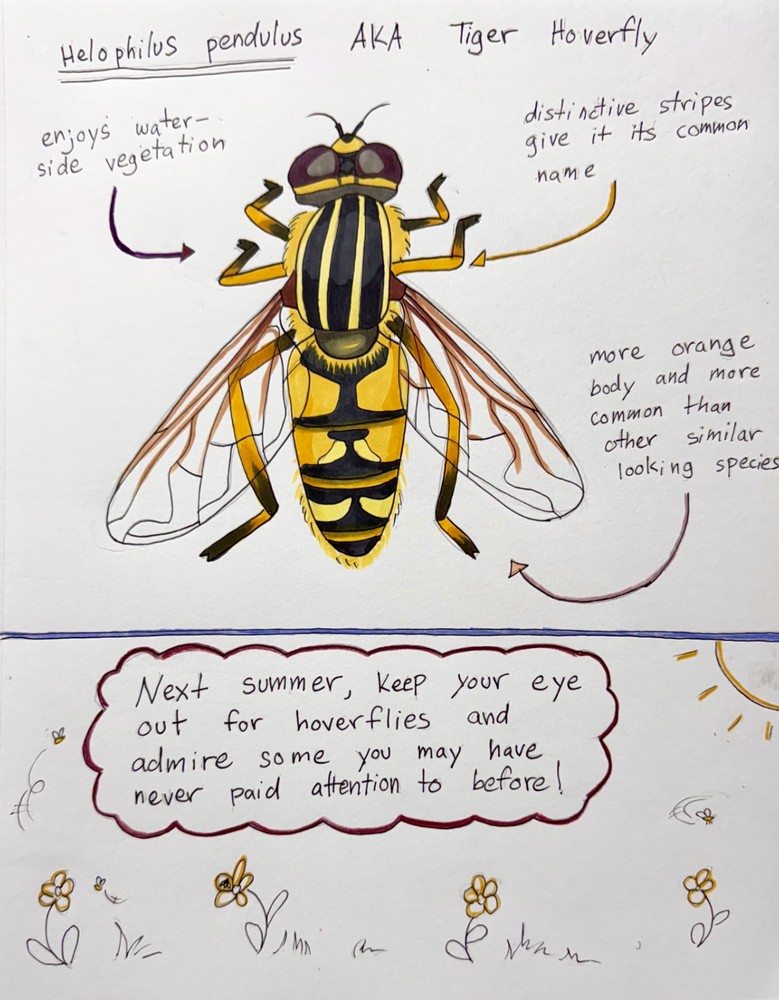 Helophilus pendulus AKA Tiger Hoverfly
enjoys water-
side vegetation
distinctive stripes
give it its common
name
more orange
body and more
common than
other similar
looking species
Next summer, keep your eye
out for hoverflies and
admire some you may have
never paid attention to before!